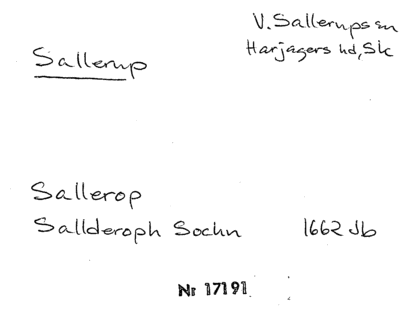 V. Sallerups sn
Harjagers hd, Sk
Sallerup
Sallerop
Sallderoph Sochn 1662 Jb
Nr 17191